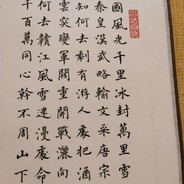 國風光千里冰封萬里雪
秦皇漢武略輸文采唐宗
知何去剩有游人處把酒
雲突變軍閥重開戰灑向
何去贛江風雪迷漫處命
千百萬同心幹不周山下